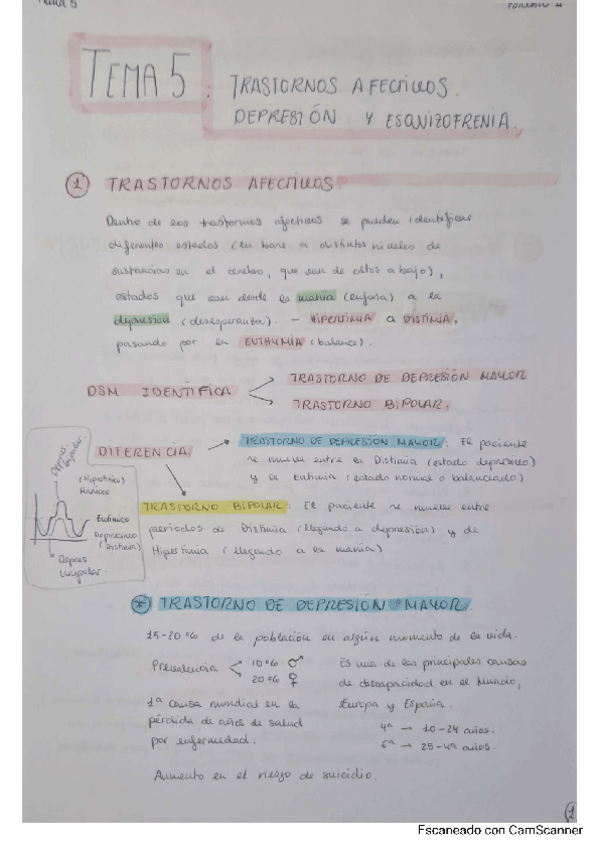 TEMA 5
TEMA 5. TRASTORNOS AFECTIVOS.
DEPRESIÓN Y ESQUIZOFRENIA.
1 TRASTORNOS AFECTIVOS.
Dentro de los trastornos afectivos se pueden identificar
diferentes estados (en base a distintos niveles de
sustancias en el cerebro, que van de altos a bajo),
estados que van desde la manía (euforia) a la
depresión (desesperanza). - HIPERTIMIA a DISTIMIA,
pasando por la EUTHYMIA (balance).
DSM IDENTIFICA
TRASTORNO DE DEPRESIÓN MAYOR
TRASTORNO BIPOLAR.
DIFERENCIA
TRASTORNO DE DEPRESIÓN MAYOR: El paciente
se mueve entre la Distimia (estado depresivo)
y la Eutimia (estado normal o balanceado)
TRASTORNO BIPOLAR: El paciente se mueve entre
periodos de Distimia (llegando a depresión) y de
Hipertimia (llegando a la manía)
(Hipertímico)
Maníaco
Eutímico
Depresivo
(Distimia)
Depres.
Unipolar.
* TRASTORNO DE DEPRESIÓN MAYOR.
15-20% de la población en algún momento de la vida.
Prevalencia
10% ♂
20% ♀
Es una de las principales causas
de discapacidad en el Mundo,
Europa y España.
4ª → 10-24 años.
6ª → 25-49 años.
1ª causa mundial en la
pérdida de años de salud
por enfermedad.
Aumento en el riesgo de suicidio.
1
Escaneado con CamScanner